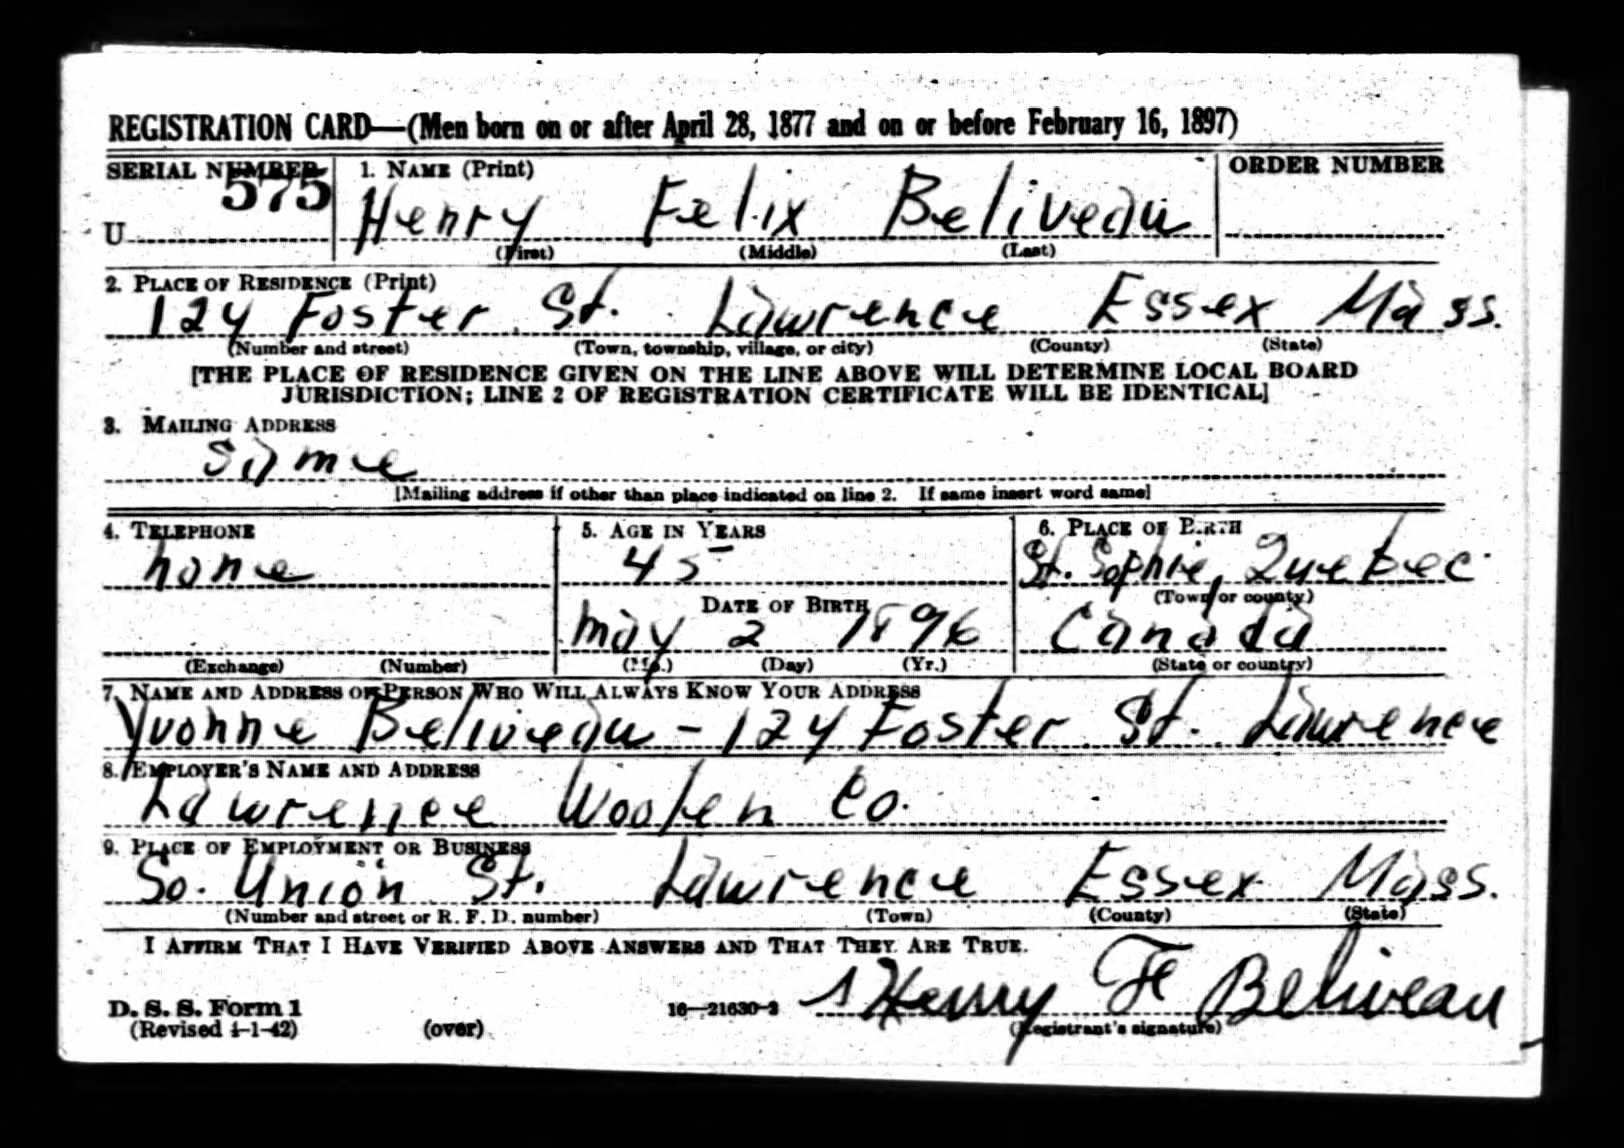 REGISTRATION CARD—(Men born on or after April 28, 1877 and on or before February 16, 1897)
SERIAL NUMBER 1. NAME (Print) ORDER NUMBER
575
U Henry Felix Beliveau
(First) (Middle) (Last)
2. PLACE OF RESIDENCE (Print)
124 Foster St. Lawrence Essex Mass.
(Number and street) (Town, township, village, or city) (County) (State)
[THE PLACE OF RESIDENCE GIVEN ON THE LINE ABOVE WILL DETERMINE LOCAL BOARD
JURISDICTION; LINE 2 OF REGISTRATION CERTIFICATE WILL BE IDENTICAL]
3. MAILING ADDRESS
same
[Mailing address if other than place indicated on line 2. If same insert word same]
4. TELEPHONE 5. AGE IN YEARS 6. PLACE OF BIRTH
none 45 St. Sophie, Quebec
DATE OF BIRTH (Town or county)
May 2 1896 Canada
(Exchange) (Number) (Mo.) (Day) (Yr.) (State or country)
7. NAME AND ADDRESS OF PERSON WHO WILL ALWAYS KNOW YOUR ADDRESS
Yvonne Beliveau - 124 Foster St. Lawrence
8. EMPLOYER'S NAME AND ADDRESS
Lawrence Woolen Co.
9. PLACE OF EMPLOYMENT OR BUSINESS
So. Union St. Lawrence Essex Mass.
(Number and street or R. F. D. number) (Town) (County) (State)
I AFFIRM THAT I HAVE VERIFIED ABOVE ANSWERS AND THAT THEY ARE TRUE.
D. S. S. Form 1 16—21630-2 Henry F Beliveau
(Revised 4-1-42) (over) (Registrant's signature)